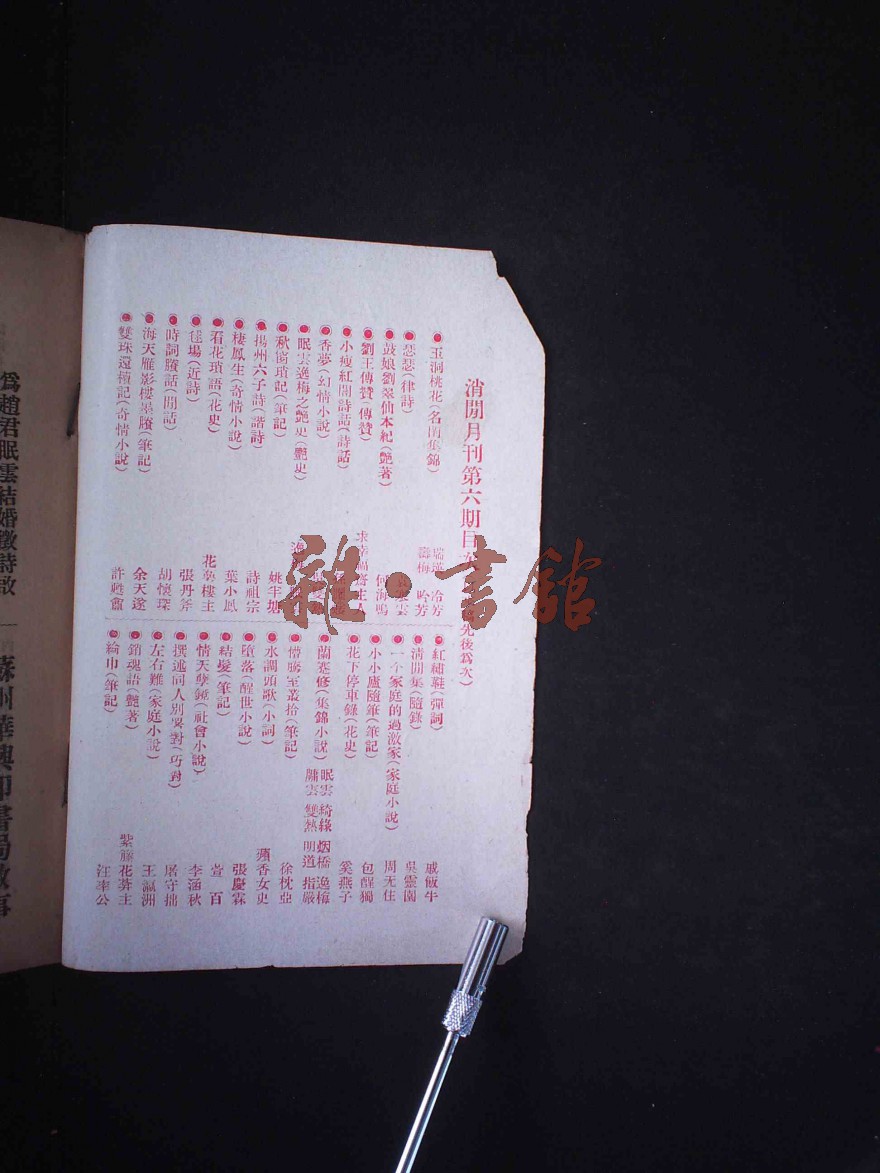 消閒月刊第六期目
先後爲次)
玉洞桃花(名閨集錦) 瑞英 冷芳 壽梅 吟芳
悲瑟(律詩) 雲
鼓娘劉翠仙本紀(艷著) 何海鳴
劉王傳贊(傳贊) 主人
小瘦紅閣詩話(詩話)
香夢(幻情小說)
眠雲逸梅之艷史(艷史)
秋窗瑣記(筆記) 姚羊塘
揚州六子詩(諧詩) 詩祖宗
棲鳳生(奇情小說) 葉小鳳
看花瑣語(花史) 花萼樓主
催場(近詩) 張丹斧
時詞賸話(閒話) 胡懷琛
海天雁影樓墨賸(筆記) 余天遂
雙珠還櫝記(奇情小說) 許甦盦
紅繡鞋(彈詞) 戚飯牛
淸閒集(隨錄) 吳靈園
一个家庭的過激家(家庭小說) 周无住
小小廬隨筆(筆記) 包醒獨
花下停車錄(花史) 奚燕子
蘭蹇修(集錦小說) 眠雲 綺緣 烟橋 逸梅 牖雲 雙熱 明道 指嚴
惜賸室叢拾(筆記) 徐枕亞
水調頭歌(小詞) 蘋香女史
墮落(醒世小說) 張慶霖
結髮(筆記) 萱百
情天孽鏡(社會小說) 李涵秋
撰述同人別號對(巧對) 屠守拙
左右難(家庭小說) 王瀛洲
銷魂語(艷著) 紫藤花莾主
綸巾(筆記) 汪率公
爲趙君眠雲結婚徵詩啟
蘇州華興印書局啟事
雜·書館